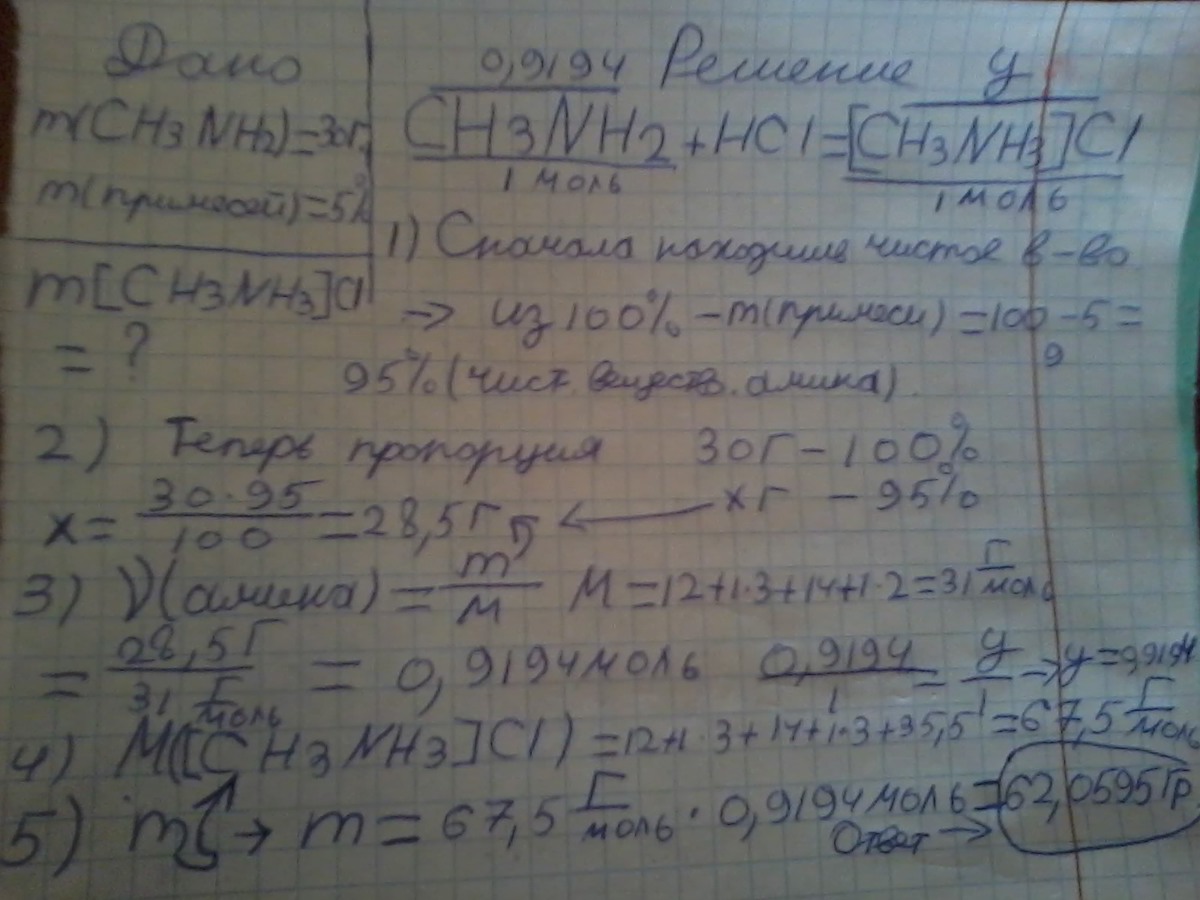 Дано
m(CH3NH2)=30г.
m(примесей)=5%
m[CH3NH3]Cl
= ?
0,9194 Решение y
CH3NH2+HCl=[CH3NH3]Cl
1 моль 1 моль
1) Сначала находим чистое в-во
→ из 100% - m(примеси) =100-5=
9
95% (чист. веществ. амина).
2) Теперь пропорция 30г - 100%
xг - 95%
x= 30·95/100 =28,5г
3) ν(амина) = m/M M =12+1·3+14+1·2=31 г/моль
= 28,5г/31 г/моль = 0,9194моль 0,9194/1 = y/1 → y=0,9194
4) M([CH3NH3]Cl) =12+1·3+14+1·3+35,5=67,5 г/моль
5) m → m = 67,5 г/моль · 0,9194моль =62,0595гр
Ответ →